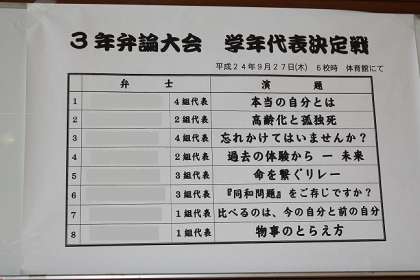 3年弁論大会　学年代表決定戦
平成24年9月27日(木)　6校時　体育館にて
弁　士　演　題
1　4組代表　本当の自分とは
2　2組代表　高齢化と孤独死
3　4組代表　忘れかけてはいませんか？
4　2組代表　過去の体験から － 未来
5　3組代表　命を繋ぐリレー
6　3組代表　『同和問題』をご存じですか？
7　1組代表　比べるのは、今の自分と前の自分
8　1組代表　物事のとらえ方